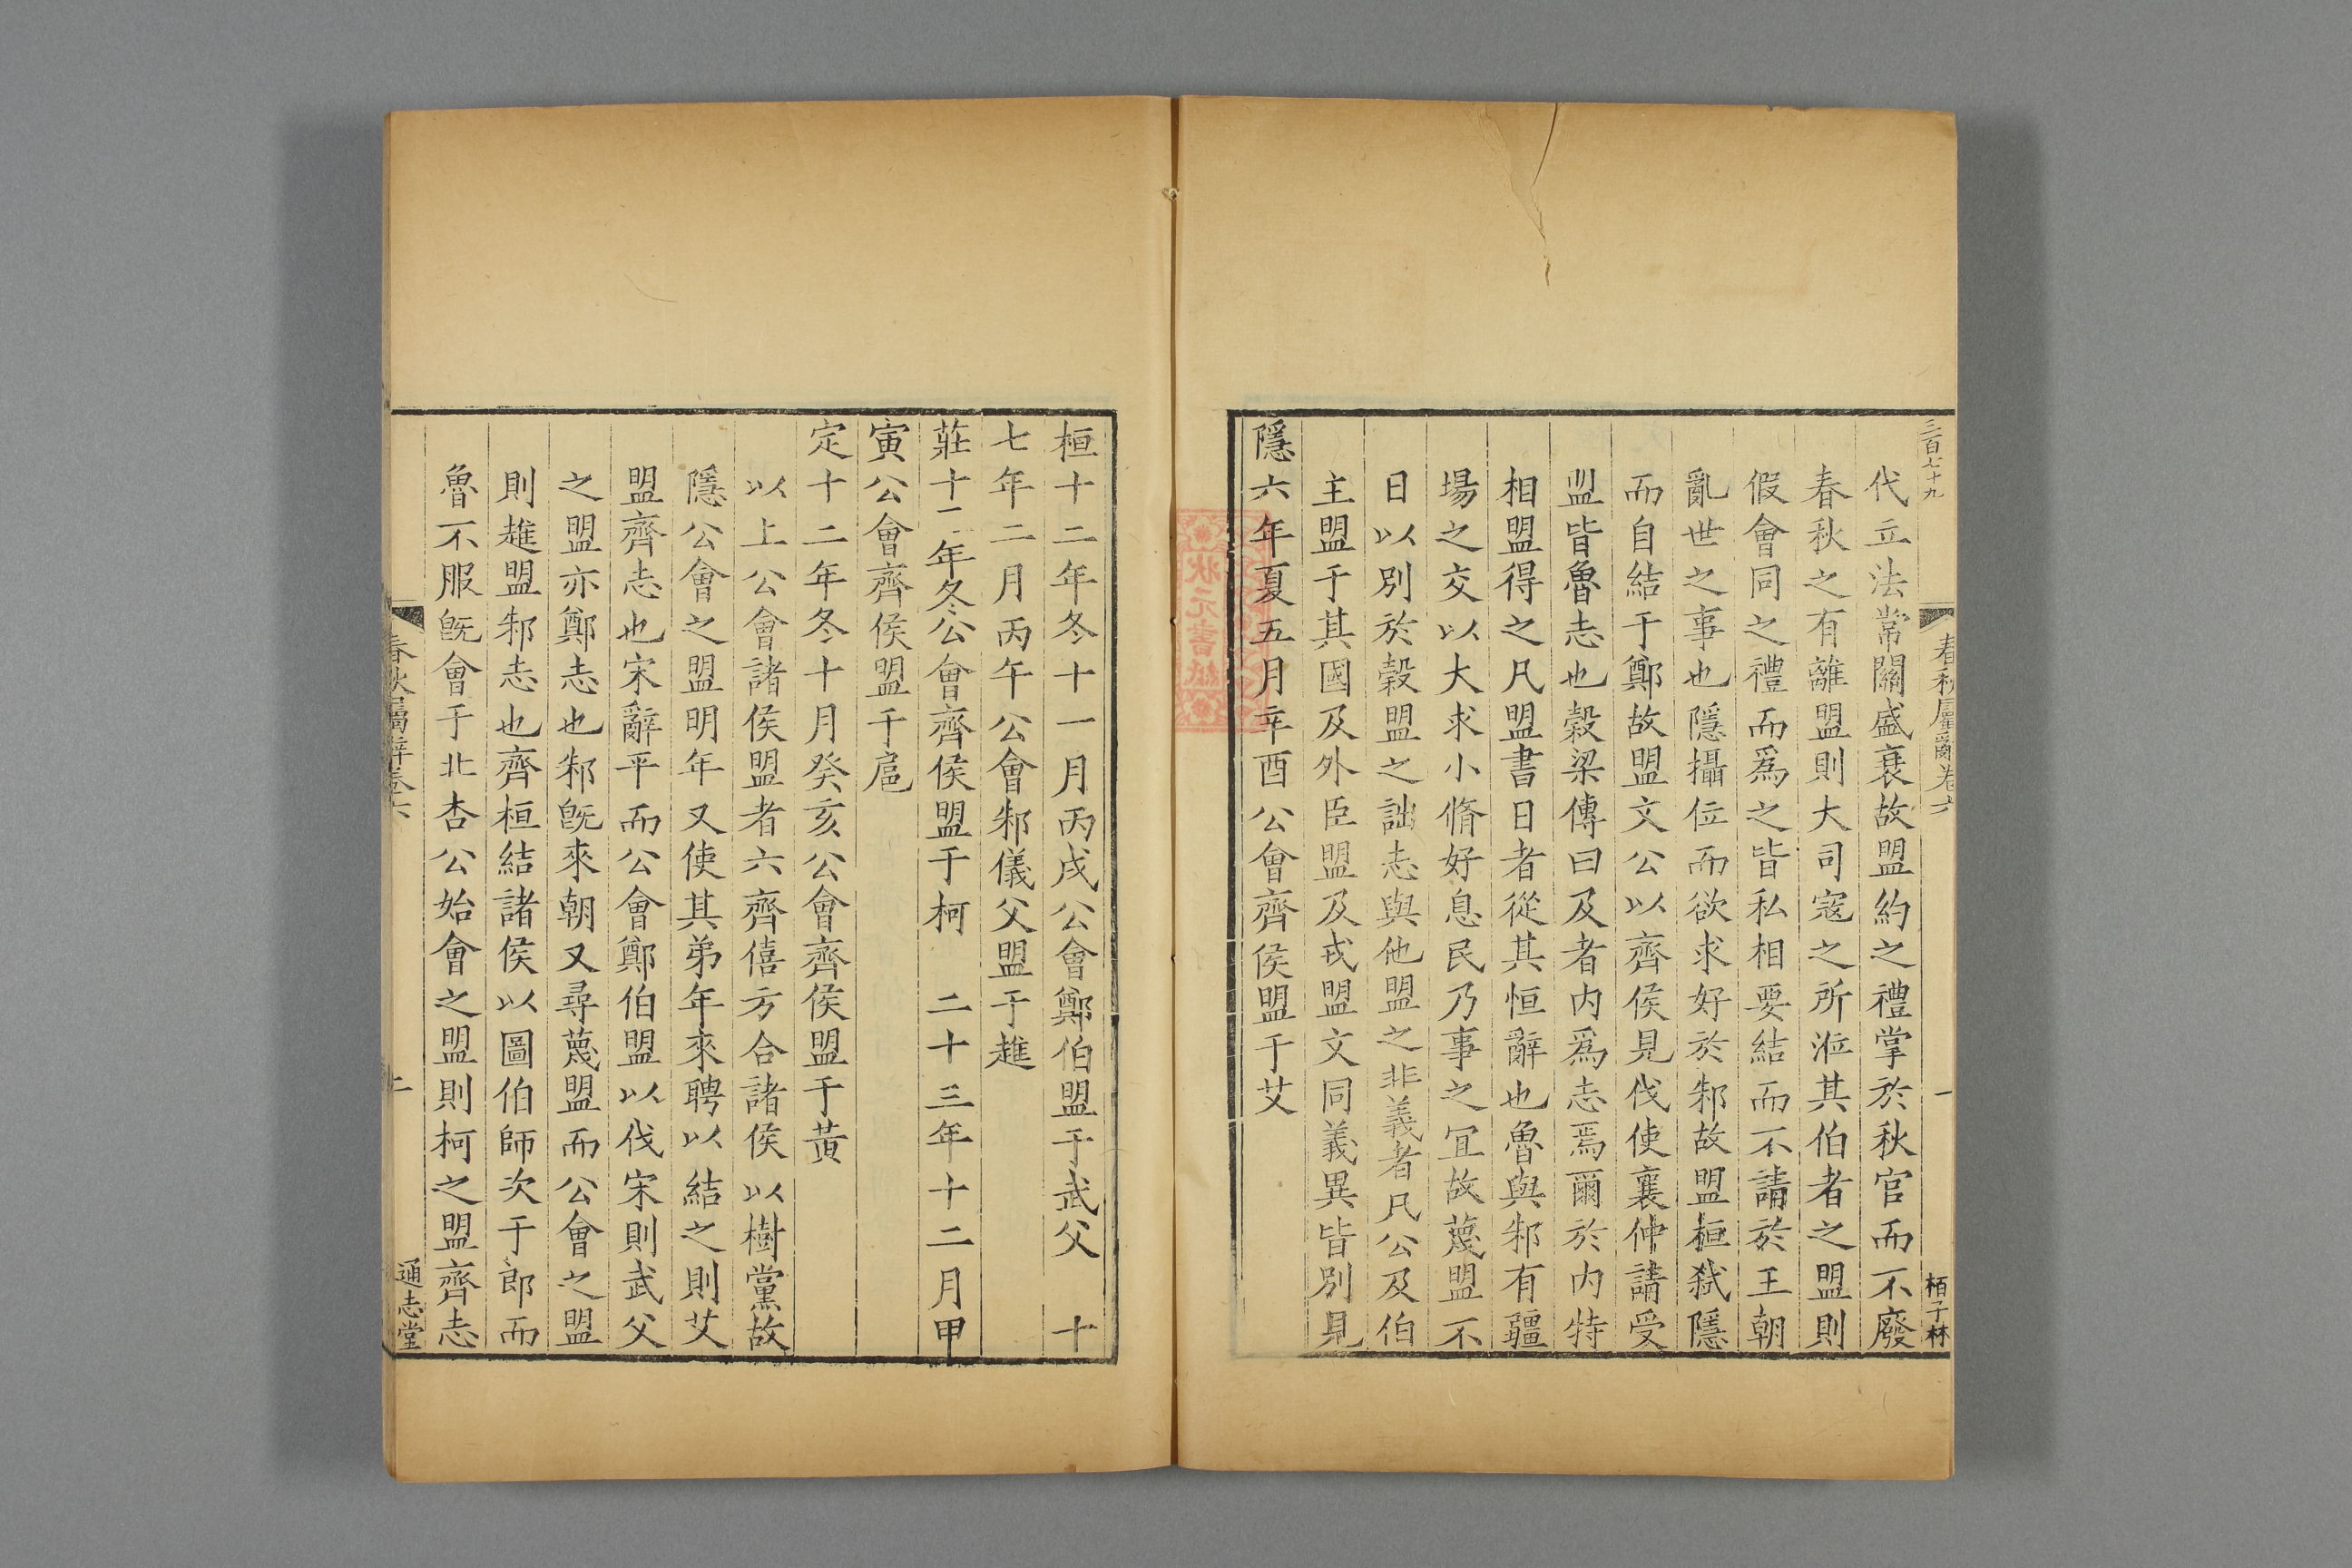 三百七十九
春秋屬辭卷六
一
栢子林
代立法常關盛衰故盟約之禮掌於秋官而不廢
春秋之有離盟則大司寇之所涖其伯者之盟則
假會同之禮而爲之皆私相要結而不請於王朝
亂世之事也隱攝位而欲求好於邾故盟桓弑隱
而自結于鄭故盟文公以齊侯見伐使襄仲請受
盟皆魯志也穀梁傳曰及者内爲志焉爾於内特
相盟得之凡盟書日者從其恒辭也魯與邾有疆
場之交以大求小脩好息民乃事之冝故蔑盟不
日以別於榖盟之詘志與他盟之非義者凡公及伯
主盟于其國及外臣盟及戎盟文同義異皆別見
隱六年夏五月辛酉公會齊侯盟于艾
狀元書紙
桓十二年冬十一月丙戌公會鄭伯盟于武父 十
七年二月丙午公會邾儀父盟于趡
莊十三年冬公會齊侯盟于柯 二十三年十二月甲
寅公會齊侯盟于扈
定十二年冬十月癸亥公會齊侯盟于黃
以上公會諸侯盟者六齊僖方合諸侯以樹黨故
隱公會之盟明年又使其弟年來聘以結之則艾
盟齊志也宋辭平而公會鄭伯盟以伐宋則武父
之盟亦鄭志也邾旣來朝又尋蔑盟而公會之盟
則趡盟邾志也齊桓結諸侯以圖伯師次于郎而
魯不服旣會于北杏公始會之盟則柯之盟齊志
春秋屬辭卷六
二
通志堂